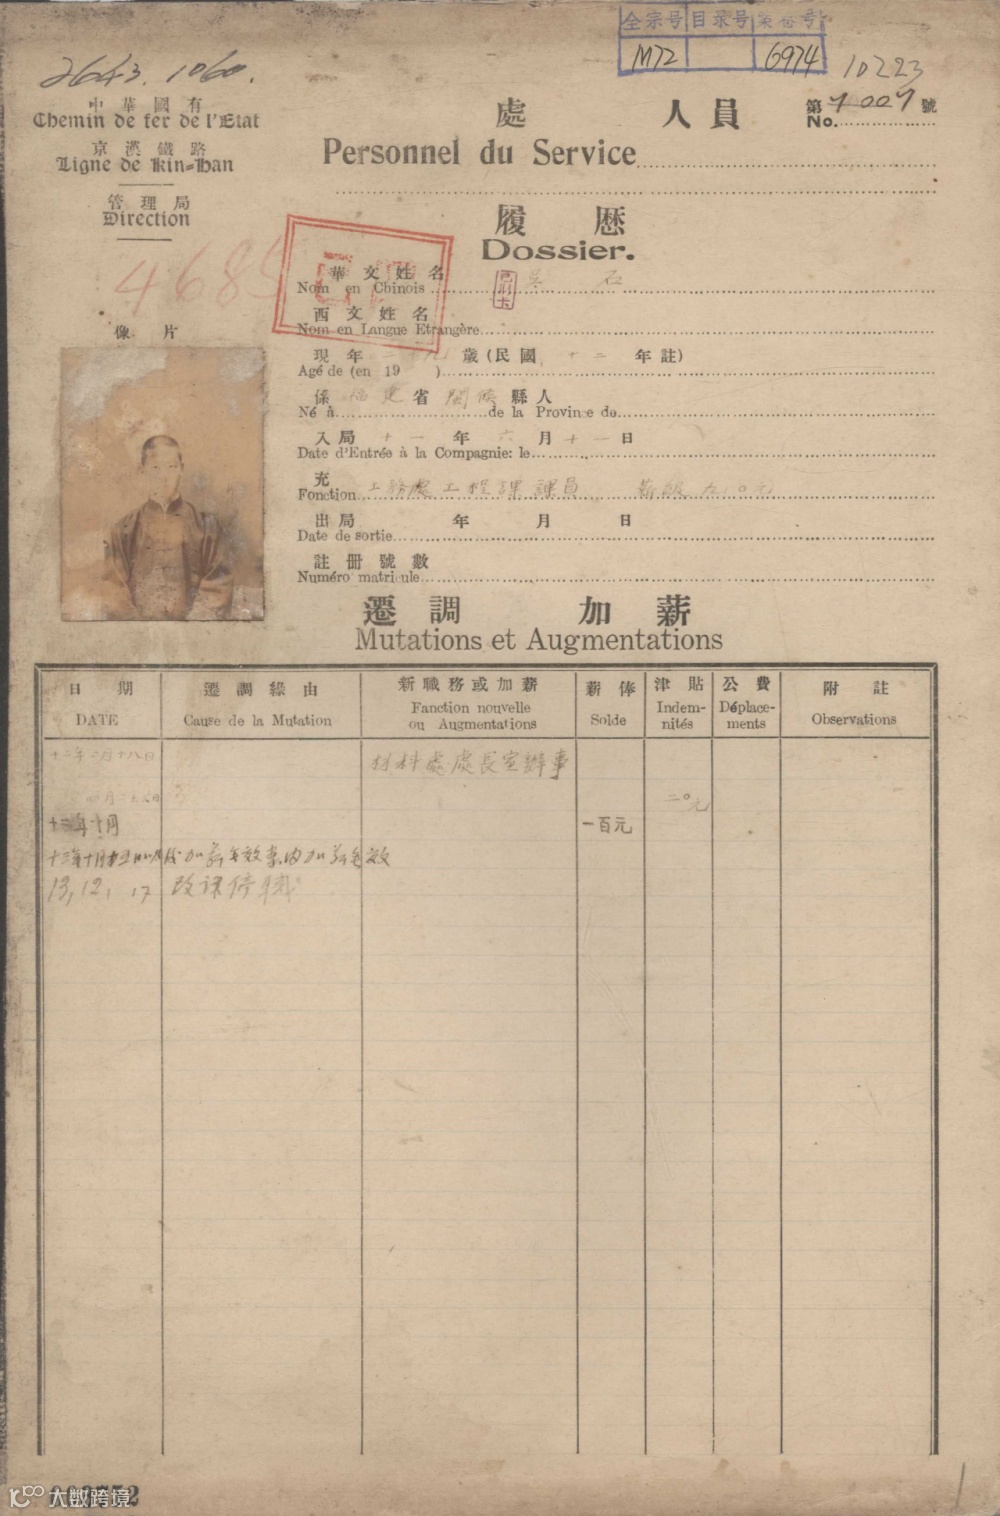 全宗号 目录号 案卷号
M72 6974
2643.1060. 10223
中華國有
Chemin de fer de l'Etat
京漢鐵路
Ligne de Kin=Han
管理局
Direction
處 人員
Personnel du Service
第 號
No.
履歷
Dossier.
4685
華文姓名 吳 石
Nom en Chinois
西文姓名
Nom en Langue Etrangère
像片
現年二十九歲(民國十二年註)
Agé de (en 19 )
係福建省閩侯縣人
Né à de la Province de
入局十一年六月十一日
Date d'Entrée à la Compagnie: le
充 工務處工程課課員 薪級九(0元)
Fonction
出局 年 月 日
Date de sortie
註冊號數
Numéro matricule
遷調 加薪
Mutations et Augmentations
日期 遷調緣由 新職務或加薪 薪俸 津貼 公費 附註
DATE Cause de la Mutation Fanction nouvelle ou Augmentations Solde Indemnités Déplacements Observations
十二年二月十八日 材料處處長室辦事
二〇元
十三年十月 一百元
13,12,17 改課停職
大数跨境